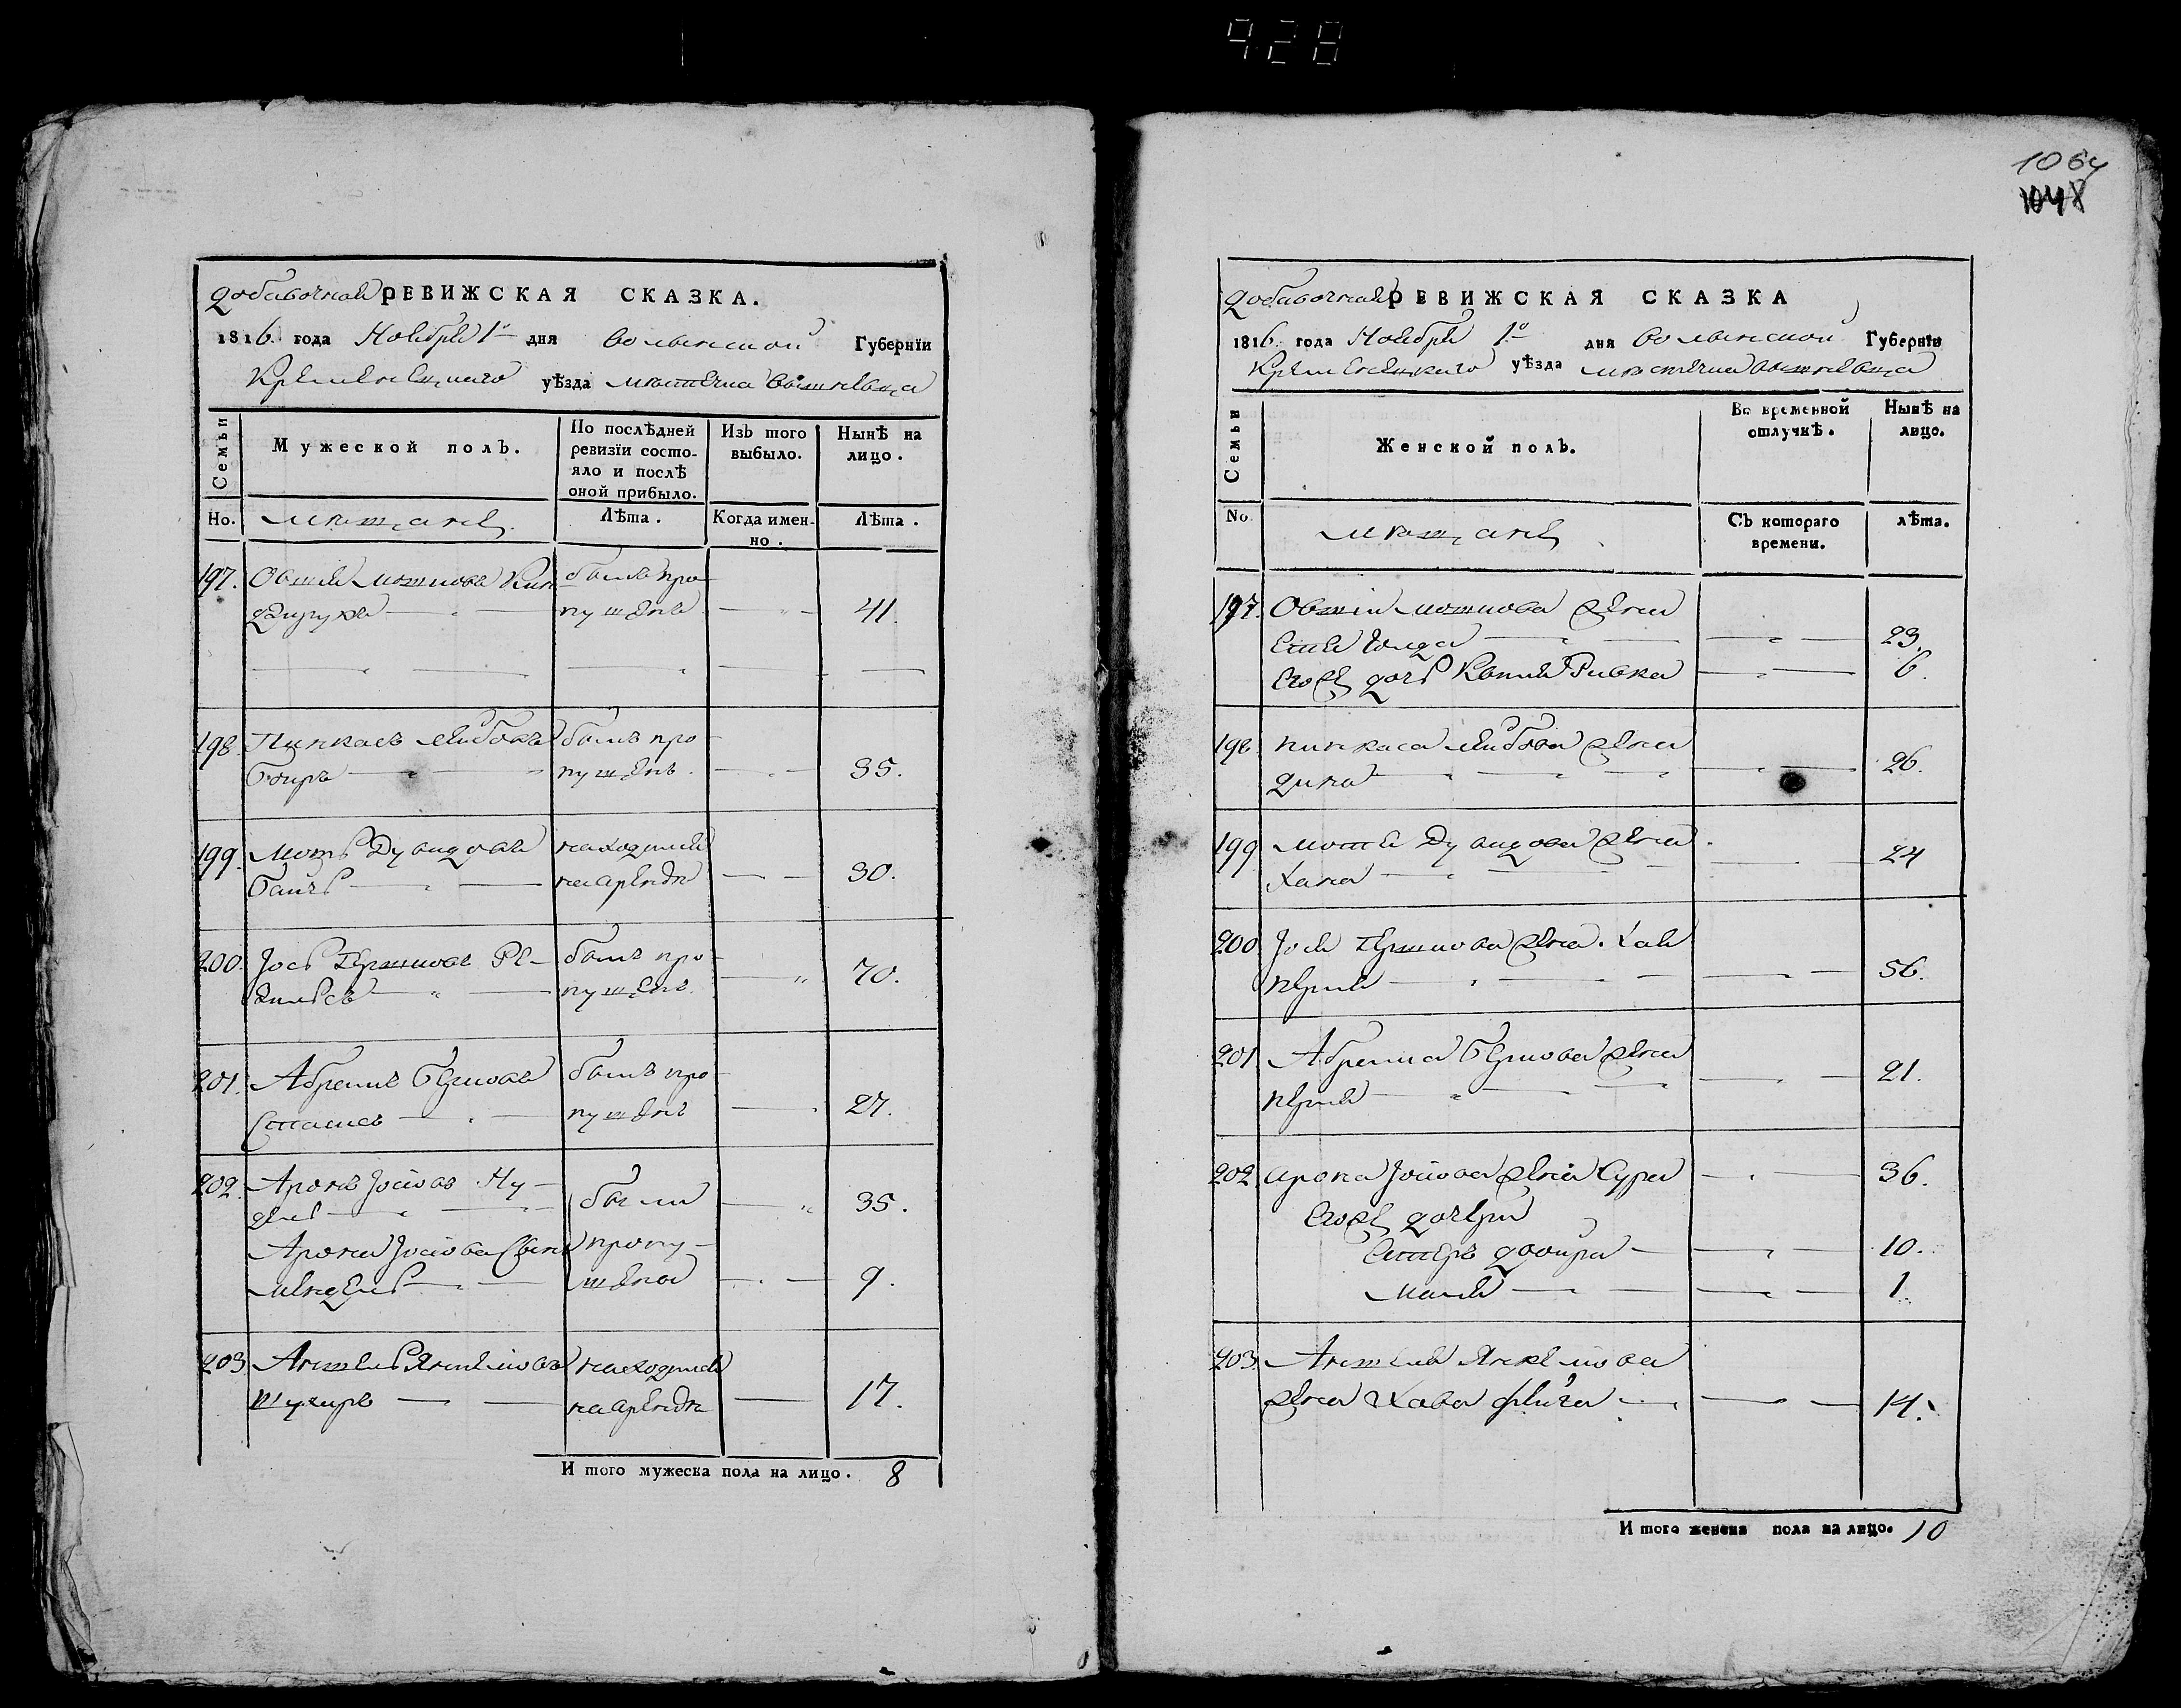 928
добавочная РЕВИЖСКАЯ СКАЗКА.
1816. года Ноября 1го дня Волынской Губернїи
Кременецкаго уѣзда местечка Вышневца
Семьи
Мужеской полъ.
По послѣдней ревизїи состояло и послѣ оной прибыло.
Изъ того выбыло.
Нынѣ на лицо.
Но.
мещане
Лѣта.
Когда именно.
Лѣта.
197. Овшия Мошков былъ про-
пущенъ 41.
198. Пинкасъ Лейбовъ былъ про-
пущенъ. 35.
199. Моть Дувидовъ находился
на аренде 30.
200. Іось Гершковъ Ре- былъ про-
пущенъ. 70.
201. Абрамъ Берковъ былъ про-
пущенъ 27.
202. Аронъ Іосіовъ Ну-
дель были 35.
Арона Іосіова сынъ пропу-
Мендель щены 9.
203 Аншель Янкелiовъ находился
Шухиръ на аренде 17.
И того мужеска пола на лицо. 8
1064
1048
добавочная РЕВИЖСКАЯ СКАЗКА
1816. года Ноября 1го дня Волынской Губернїи
Кременецкаго уѣзда местечка Вышневца
Семьи
Женской полъ.
Во временной отлучкѣ.
Нынѣ на лицо.
No
мещане
Съ котораго времени.
лѣта.
197. Овшiи Мошкова жена
23.
Егоже дочь Ривка 6.
198. Пинкаса Лейбова жена
Дина 26.
199 Мотя Дувидова жена
Хана 24
200 Іося Гершкова жена. Хая
Перля 56.
201 Абрама Беркова жена
Перля 21.
202. Арона Іосіова жена Сура 36.
Егоже дочери
Естеръ Двойра 10.
Маля 1.
203. Аншеля Янкелiова
жена Хава Фейга 14.
И того женска пола на лицо. 10